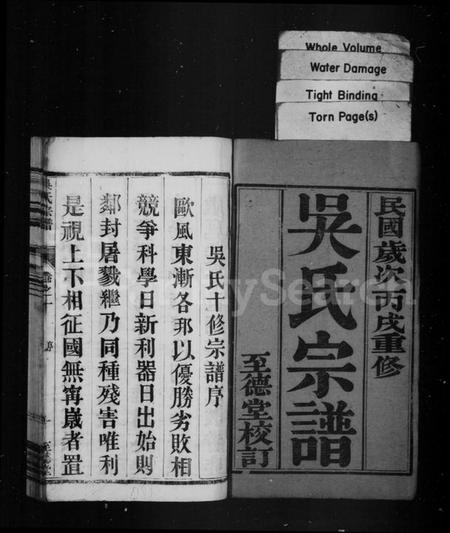 Whole Volume
Water Damage
Tight Binding
Torn Page(s)
民國歲次丙戌重修
吳氏宗譜
至德堂校訂
吳氏十修宗譜序
歐風東漸各邦以優勝劣敗相
競爭科學日新利器日出始則
鄰封屠戮繼乃同種殘害唯利
是視上下相征國無寧歲者置
吳氏宗譜